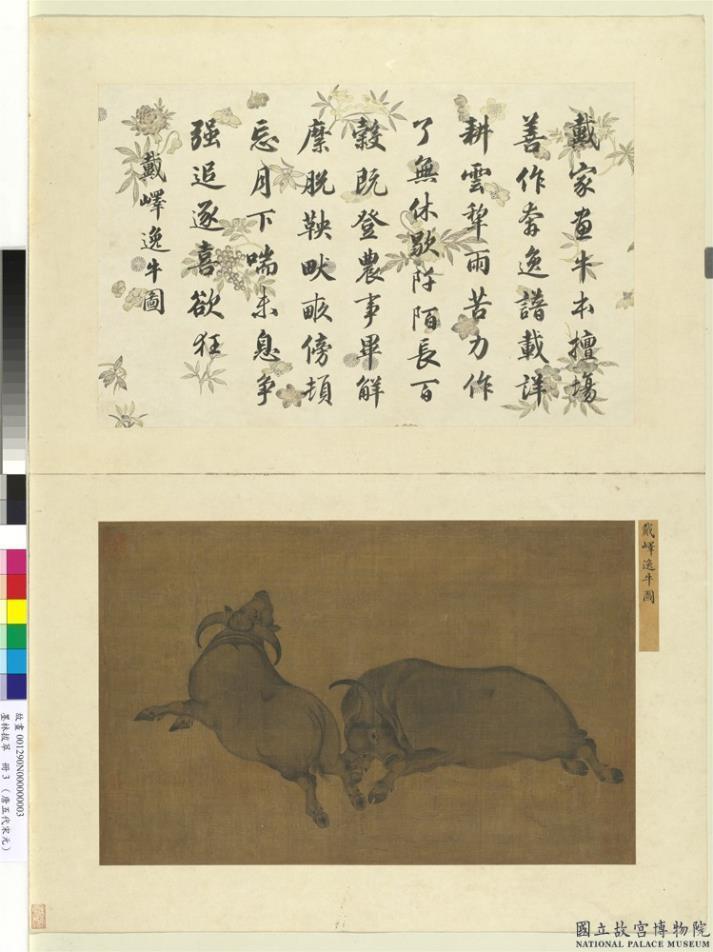 戴家畫牛本擅塲
善作奔逸譜載詳
耕雲犂雨苦力作
了無休歇阡陌長百
穀既登農事畢解
縻脱鞅畎畝傍頓
忘月下喘未息爭
强追逐喜欲狂
戴嶧逸牛圖
戴嶧逸牛圖
故畫001290N000000003
墨林拔萃 冊3 （唐五代宋元）
國立故宮博物院
NATIONAL PALACE MUSEUM